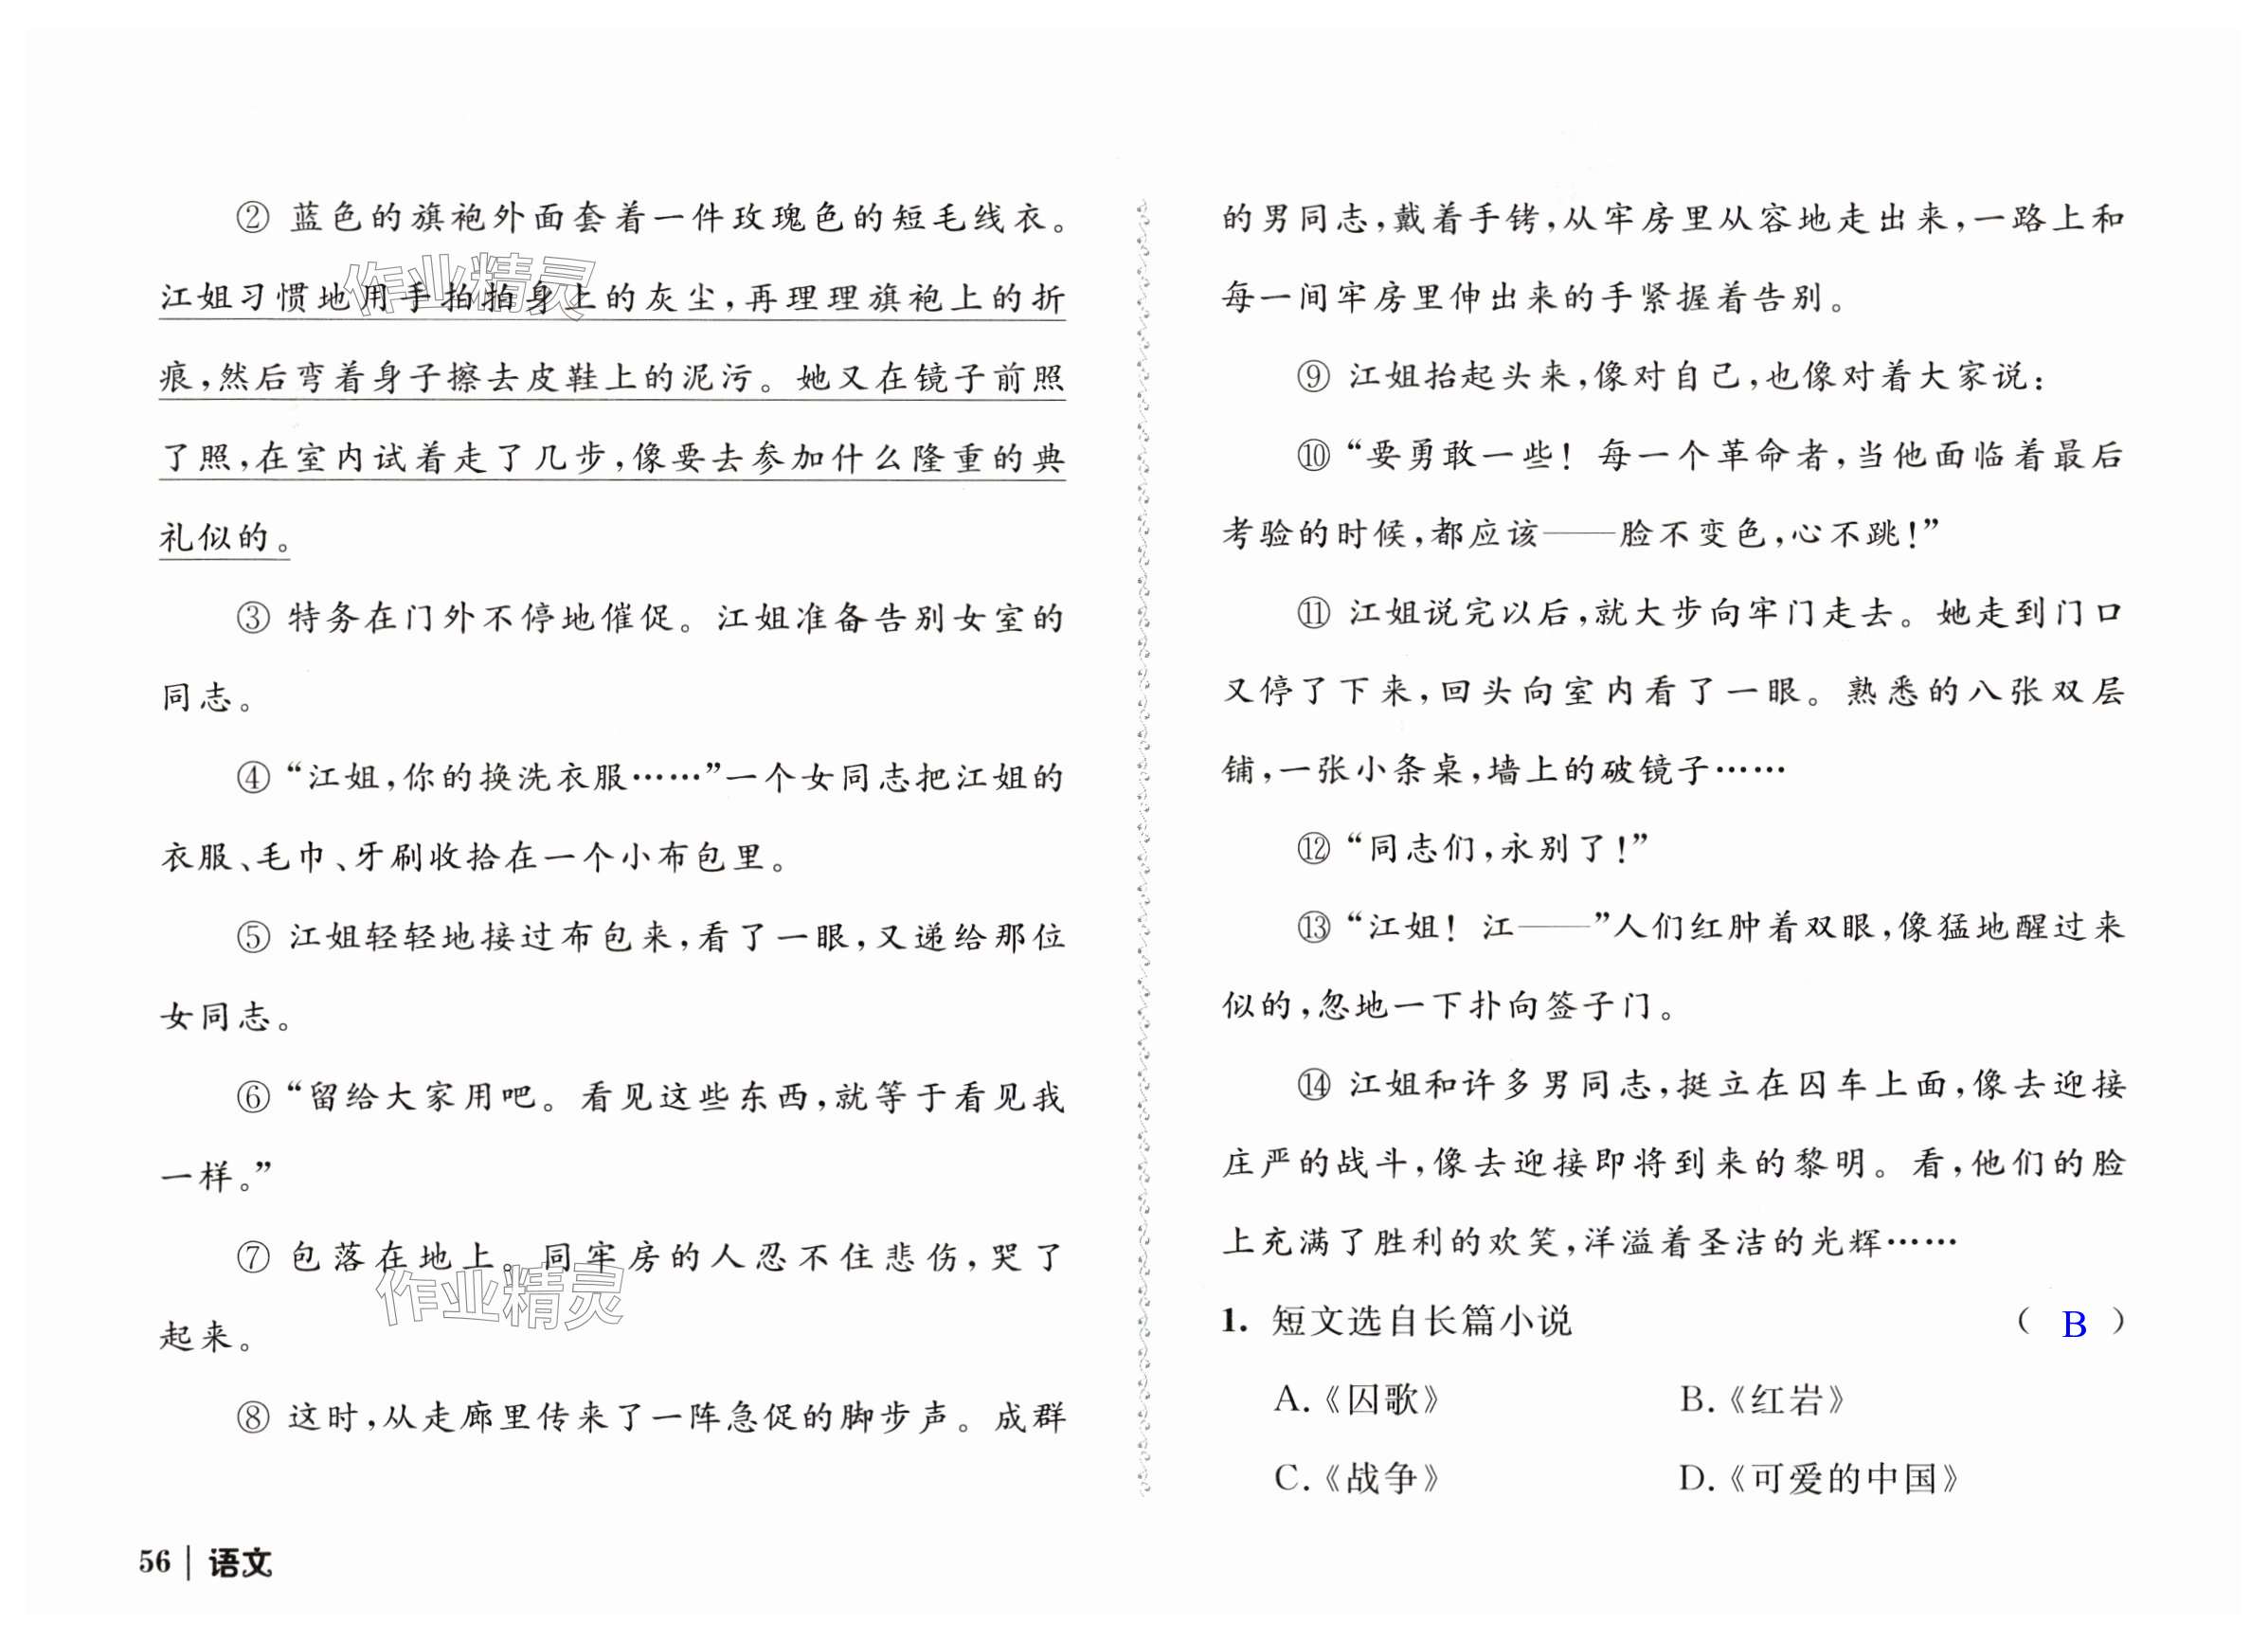 ② 蓝色的旗袍外面套着一件玫瑰色的短毛线衣。
江姐习惯地用手拍拍身上的灰尘，再理理旗袍上的折
痕，然后弯着身子擦去皮鞋上的泥污。她又在镜子前照
了照，在室内试着走了几步，像要去参加什么隆重的典
礼似的。
③ 特务在门外不停地催促。江姐准备告别女室的
同志。
④“江姐，你的换洗衣服……”一个女同志把江姐的
衣服、毛巾、牙刷收拾在一个小布包里。
⑤ 江姐轻轻地接过布包来，看了一眼，又递给那位
女同志。
⑥“留给大家用吧。看见这些东西，就等于看见我
一样。”
⑦ 包落在地上。同牢房的人忍不住悲伤，哭了
起来。
⑧ 这时，从走廊里传来了一阵急促的脚步声。成群
作业精灵
作业精灵
56 | 语文
的男同志，戴着手铐，从牢房里从容地走出来，一路上和
每一间牢房里伸出来的手紧握着告别。
⑨ 江姐抬起头来，像对自己，也像对着大家说：
⑩“要勇敢一些！每一个革命者，当他面临着最后
考验的时候，都应该——脸不变色，心不跳！”
⑪ 江姐说完以后，就大步向牢门走去。她走到门口
又停了下来，回头向室内看了一眼。熟悉的八张双层
铺，一张小条桌，墙上的破镜子……
⑫“同志们，永别了！”
⑬“江姐！江——”人们红肿着双眼，像猛地醒过来
似的，忽地一下扑向签子门。
⑭ 江姐和许多男同志，挺立在囚车上面，像去迎接
庄严的战斗，像去迎接即将到来的黎明。看，他们的脸
上充满了胜利的欢笑，洋溢着圣洁的光辉……
1. 短文选自长篇小说 （ B ）
A.《囚歌》 B.《红岩》
C.《战争》 D.《可爱的中国》